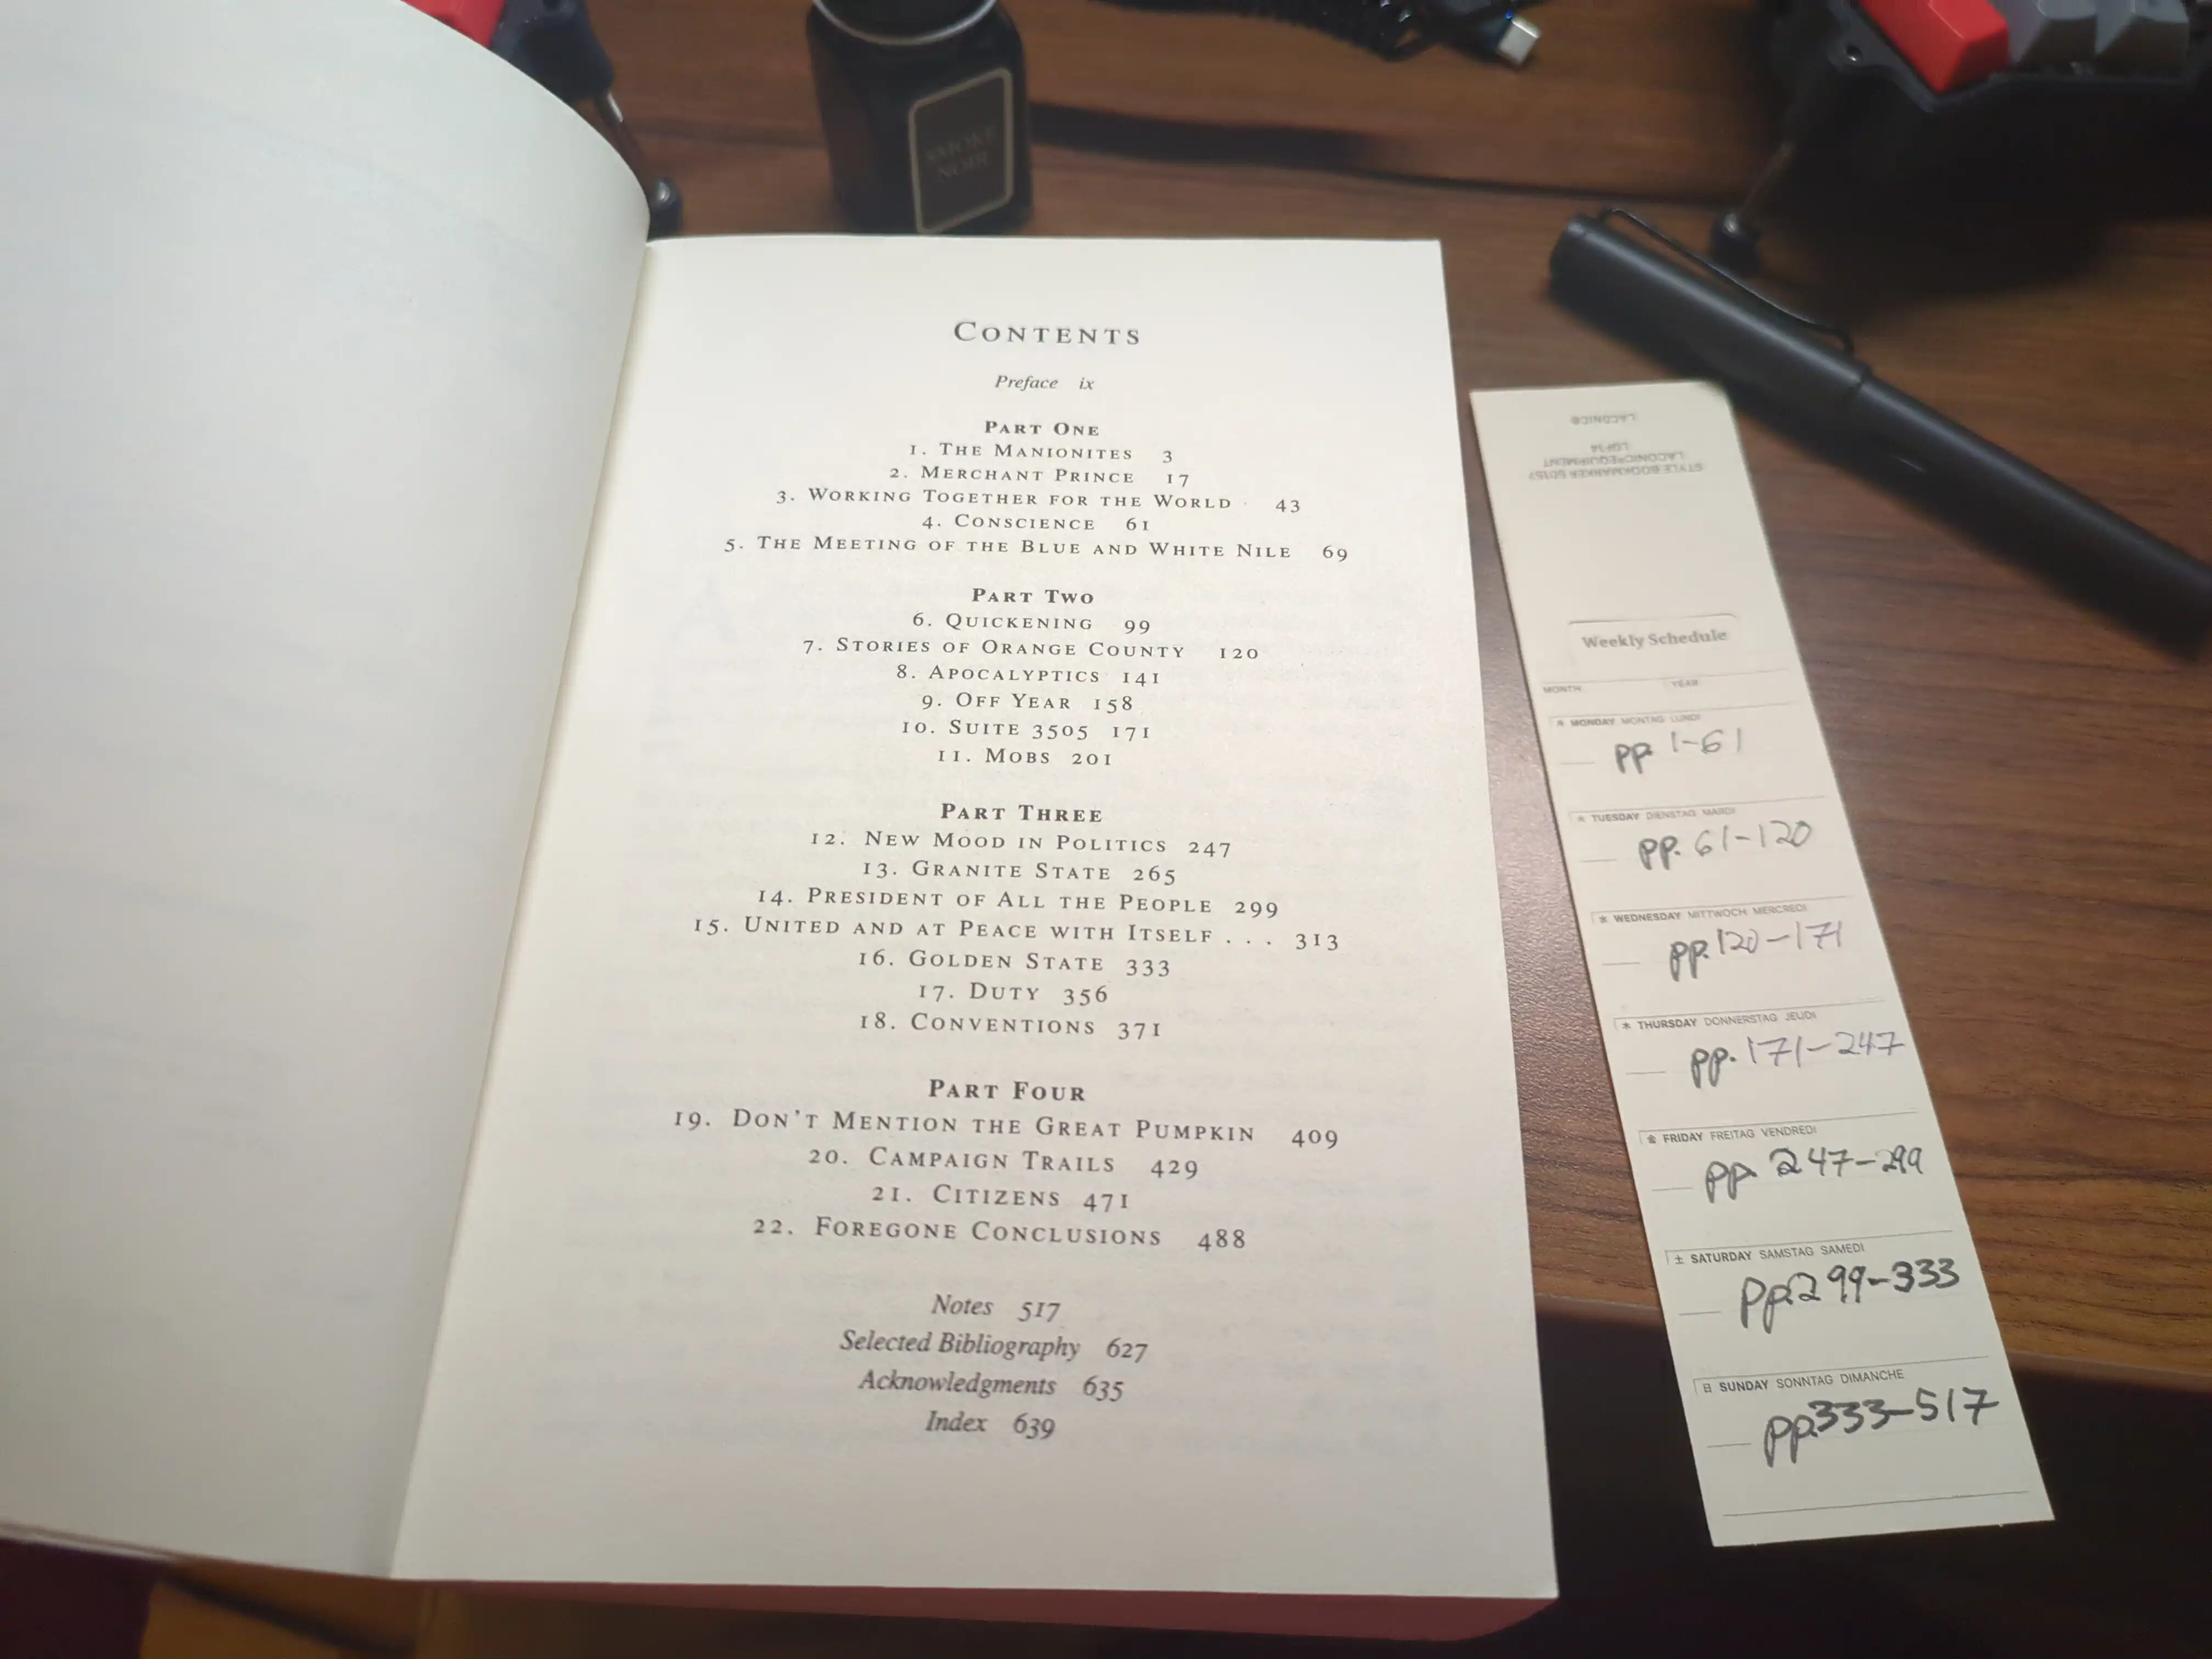 SMOKE
NOIR
CONTENTS
Preface ix
PART ONE
1. THE MANIONITES 3
2. MERCHANT PRINCE 17
3. WORKING TOGETHER FOR THE WORLD 43
4. CONSCIENCE 61
5. THE MEETING OF THE BLUE AND WHITE NILE 69
PART TWO
6. QUICKENING 99
7. STORIES OF ORANGE COUNTY 120
8. APOCALYPTICS 141
9. OFF YEAR 158
10. SUITE 3505 171
11. MOBS 201
PART THREE
12. NEW MOOD IN POLITICS 247
13. GRANITE STATE 265
14. PRESIDENT OF ALL THE PEOPLE 299
15. UNITED AND AT PEACE WITH ITSELF . . . 313
16. GOLDEN STATE 333
17. DUTY 356
18. CONVENTIONS 371
PART FOUR
19. DON'T MENTION THE GREAT PUMPKIN 409
20. CAMPAIGN TRAILS 429
21. CITIZENS 471
22. FOREGONE CONCLUSIONS 488
Notes 517
Selected Bibliography 627
Acknowledgments 635
Index 639
STYLE BOOKMARKER
LACONIC
Weekly Schedule
MONTH YEAR
月 MONDAY MONTAG LUNDI
pp. 1-61
火 TUESDAY DIENSTAG MARDI
pp. 61-120
水 WEDNESDAY MITTWOCH MERCREDI
pp. 120-171
木 THURSDAY DONNERSTAG JEUDI
pp. 171-247
金 FRIDAY FREITAG VENDREDI
pp 247-299
土 SATURDAY SAMSTAG SAMEDI
pp. 299-333
日 SUNDAY SONNTAG DIMANCHE
pp. 333-517